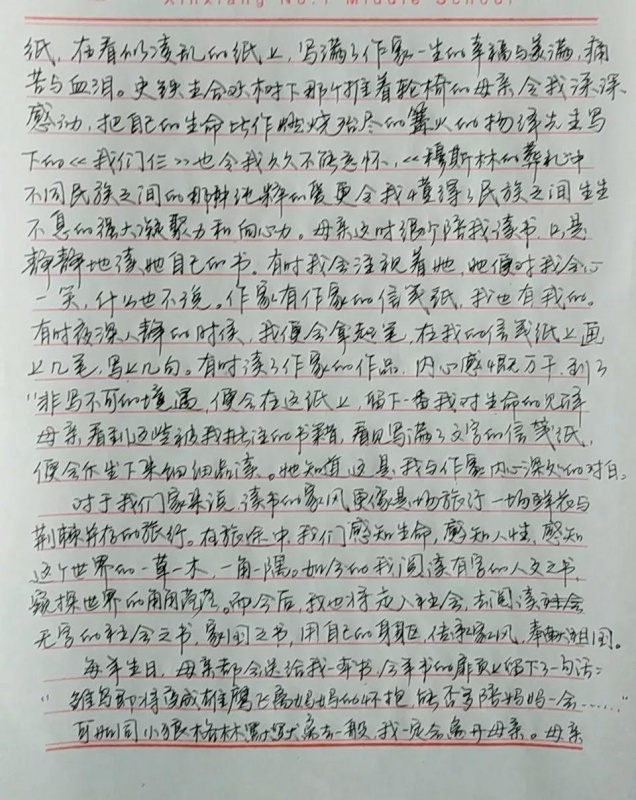 Xinxiang No.1 Middle School
纸，在看似凌乱的纸上，写满了作家一生的幸福与美满，痛
苦与血泪。史铁生合欢树下那个推着轮椅的母亲令我深深
感动，把自己的生命比作燃烧殆尽的篝火的杨绛先生写
下的《我们仨》也令我久久不能忘怀，《穆斯林的葬礼》中
不同民族之间的那种纯粹的爱更令我懂得了民族之间生生
不息的强大凝聚力和向心力。母亲这时很少陪我读书，只是
静静地读她自己的书。有时我会注视着她，她便对我会心
一笑，什么也不说。作家有作家的信笺纸，我也有我的。
有时夜深人静的时侯，我便会拿起笔，在我的信笺纸上画
上几笔，写上几句。有时读了作家的作品，内心感慨万千，到了
“非写不可的境遇，便会在这纸上，留下一番我对生命的见解
母亲看到这些被我批注的书籍，看见写满了文字的信笺纸，
便会坐下来细细品读。她知道这是我与作家内心深处的对白。
对于我们家来说，读书的家风更像是一场旅行，一场鲜花与
荆棘并存的旅行。在旅途中，我们感知生命，感知人性，感知
这个世界的一草一木，一角一隅。如今的我阅读有字的人文之书，
窥探世界的角角落落。而今后，我也将走入社会，去阅读社会
无字的社会之书，家国之书，用自己的身躯，传承家风，奉献祖国。
每年生日，母亲都会送给我一本书，今年书的扉页上留下了一句话：
“雏鸟即将变成雄鹰飞离妈妈的怀抱，能否多陪妈妈一会……”
可如同小狼格林默默离去一般，我一定会离开母亲。母亲